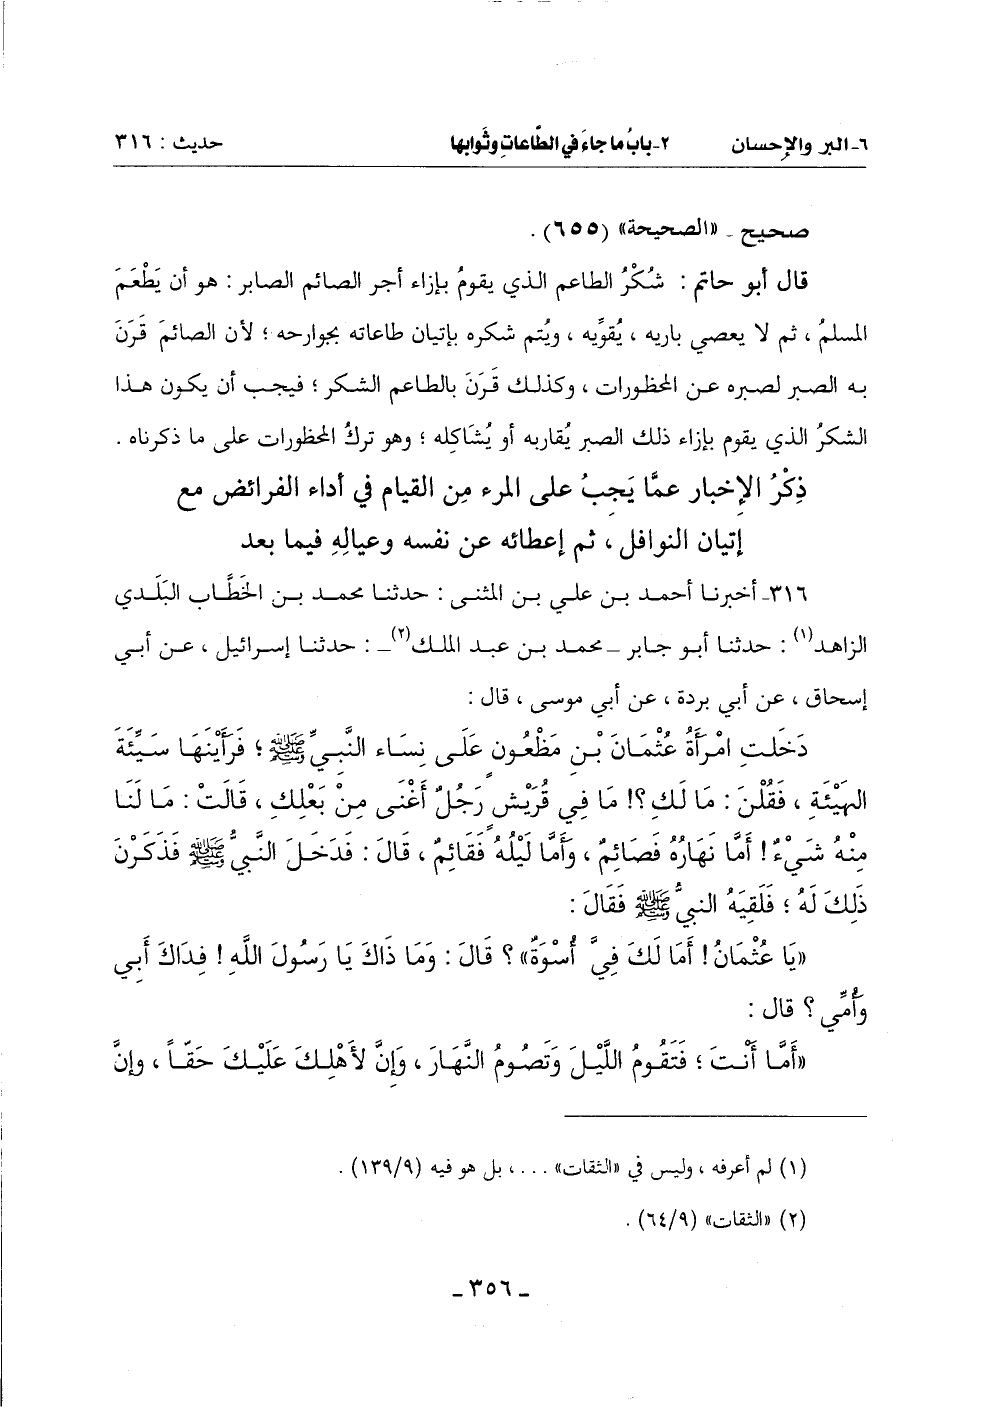 ٦ـ البر والإحسان ٢ـ بابُ ما جاءَ في الطَّاعاتِ وثَوابها حديث : ٣١٦
صحيح ـ «الصحيحة» (٦٥٥) .
قال أبو حاتم : شُكْرُ الطاعم الذي يقومُ بإزاء أجر الصائم الصابر : هو أن يَطْعَمَ
المسلمُ ، ثم لا يعصي باريه ، يُقوِّيه ، ويُتم شكره بإتيان طاعاته بجوارحه ؛ لأن الصائمَ قَرَنَ
به الصبر لصبره عن المحظورات ، وكذلك قَرَنَ بالطاعم الشكر ؛ فيجب أن يكون هذا
الشكرُ الذي يقوم بإزاء ذلك الصبر يُقاربه أو يُشَاكِله ؛ وهو تركُ المحظورات على ما ذكرناه .
ذِكْرُ الإخبار عمَّا يَجِبُ على المرء مِن القيام في أداء الفرائض مع
إتيان النوافل ، ثم إعطائه عن نفسه وعيالِهِ فيما بعد
٣١٦ـ أخبرنا أحمد بن علي بن المثنى : حدثنا محمد بن الخطَّاب البَلَدي
الزاهد(١) : حدثنا أبو جابر ـ محمد بن عبد الملك(٢) ـ : حدثنا إسرائيل ، عن أبي
إسحاق ، عن أبي بردة ، عن أبي موسى ، قال :
دَخَلَتِ امْرَأَةُ عُثْمَانَ بْنِ مَظْعُونٍ عَلَى نِسَاء النَّبيِّ ﷺ ؛ فَرَأَيْنَهَا سَيِّئَةَ
الهَيْئَةِ ، فَقُلْنَ : مَا لَكِ ؟! مَا فِي قُرَيْشٍ رَجُلٌ أَغْنَى مِنْ بَعْلِكِ ، قَالَتْ : مَا لَنَا
مِنْهُ شَيْءٌ! أَمَّا نَهَارُهُ فَصَائِمٌ ، وَأَمَّا لَيْلُهُ فَقَائِمٌ ، قَالَ : فَدَخَلَ النَّبيُّ ﷺ فَذَكَرْنَ
ذَلِكَ لَهُ ؛ فَلَقِيَهُ النبيُّ ﷺ فَقَالَ :
«يَا عُثْمَانُ! أَمَا لَكَ فِيَّ أُسْوَةٌ» ؟ قَالَ : وَمَا ذَاكَ يَا رَسُولَ اللَّهِ ! فِدَاكَ أَبِي
وَأُمِّي ؟ قال :
«أَمَّا أَنْتَ ؛ فَتَقُومُ اللَّيْلَ وَتَصُومُ النَّهَارَ ، وَإِنَّ لأَهْلِكَ عَلَيْكَ حَقّاً ، وإنَّ
(١) لم أعرفه ، وليس في «الثقات» . . . ، بل هو فيه (١٣٩/٩) .
(٢) «الثقات» (٦٤/٩) .
ـ ٣٥٦ ـ